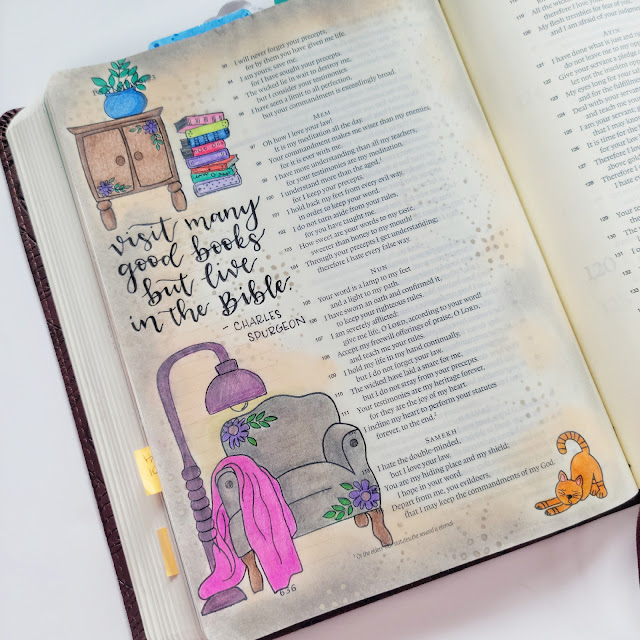 93 I will never forget your precepts,
for by them you have given me life.
94 I am yours; save me,
for I have sought your precepts.
95 The wicked lie in wait to destroy me,
but I consider your testimonies.
96 I have seen a limit to all perfection,
but your commandment is exceedingly broad.
MEM
97 Oh how I love your law!
It is my meditation all the day.
98 Your commandment makes me wiser than my enemies,
for it is ever with me.
99 I have more understanding than all my teachers,
for your testimonies are my meditation.
100 I understand more than the aged,
for I keep your precepts.
101 I hold back my feet from every evil way,
in order to keep your word.
102 I do not turn aside from your rules,
for you have taught me.
103 How sweet are your words to my taste,
sweeter than honey to my mouth!
104 Through your precepts I get understanding;
therefore I hate every false way.
NUN
105 Your word is a lamp to my feet
and a light to my path.
106 I have sworn an oath and confirmed it,
to keep your righteous rules.
107 I am severely afflicted;
give me life, O LORD, according to your word!
108 Accept my freewill offerings of praise, O LORD,
and teach me your rules.
109 I hold my life in my hand continually,
but I do not forget your law.
110 The wicked have laid a snare for me,
but I do not stray from your precepts.
111 Your testimonies are my heritage forever,
for they are the joy of my heart.
112 I incline my heart to perform your statutes
forever, to the end.
SAMEKH
I hate the double-minded,
but I love your law.
You are my hiding place and my shield;
I hope in your word.
Depart from me, you evildoers,
that I may keep the commandments of my God.
visit many
good books
but live
in the Bible.
- CHARLES
SPURGEON
636
119
120 My flesh trembles for fear of you,
and I am afraid of your
AYIN
121 I have done what is just
122 Give your servant a
let not the
123 My eyes long for your
and for the
124 Deal with your
and teach me
125 I am your servant
that I may
126 It is time for the
for your law
127 Therefore I
above
128 Therefore
I hate
129 Your
120